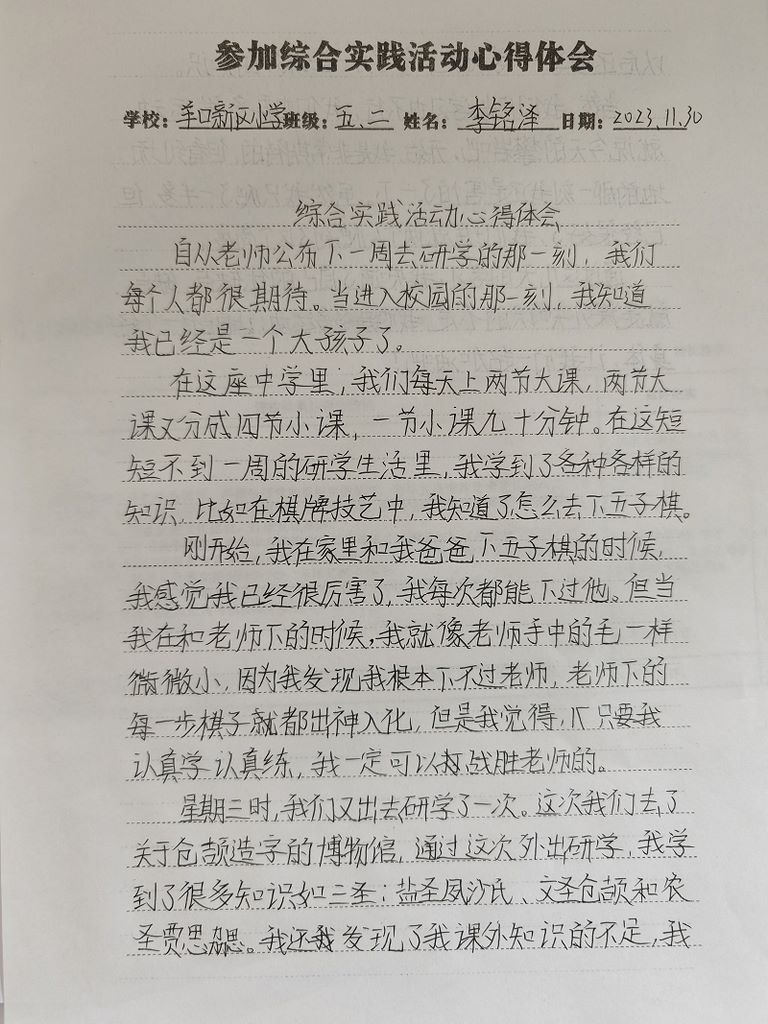 参加综合实践活动心得体会
学校：羊口新区小学班级：五、二 姓名：李铭泽 日期：2023.11.30
综合实践活动心得体会
自从老师公布下一周去研学的那一刻，我们
每个人都很期待。当进入校园的那一刻，我知道
我已经是一个大孩子了。
在这座中学里，我们每天上两节大课，两节大
课又分成四节小课，一节小课九十分钟。在这短
短不到一周的研学生活里，我学到了各种各样的
知识，比如在棋牌技艺中，我知道了怎么去下五子棋。
刚开始，我在家里和我爸爸下五子棋的时候，
我感觉我已经很厉害了，我每次都能下过他。但当
我在和老师下的时候，我就像老师手中的毛一样
微微小，因为我发现我根本下不过老师，老师下的
每一步棋子就都出神入化，但是我觉得，只要我
认真学认真练，我一定可以战胜老师的。
星期三时，我们又出去研学了一次。这次我们去了
关于仓颉造字的博物馆，通过这次外出研学，我学
到了很多知识如三圣：盐圣夙沙氏、文圣仓颉和农
圣贾思勰。我还发现了我课外知识的不足，我